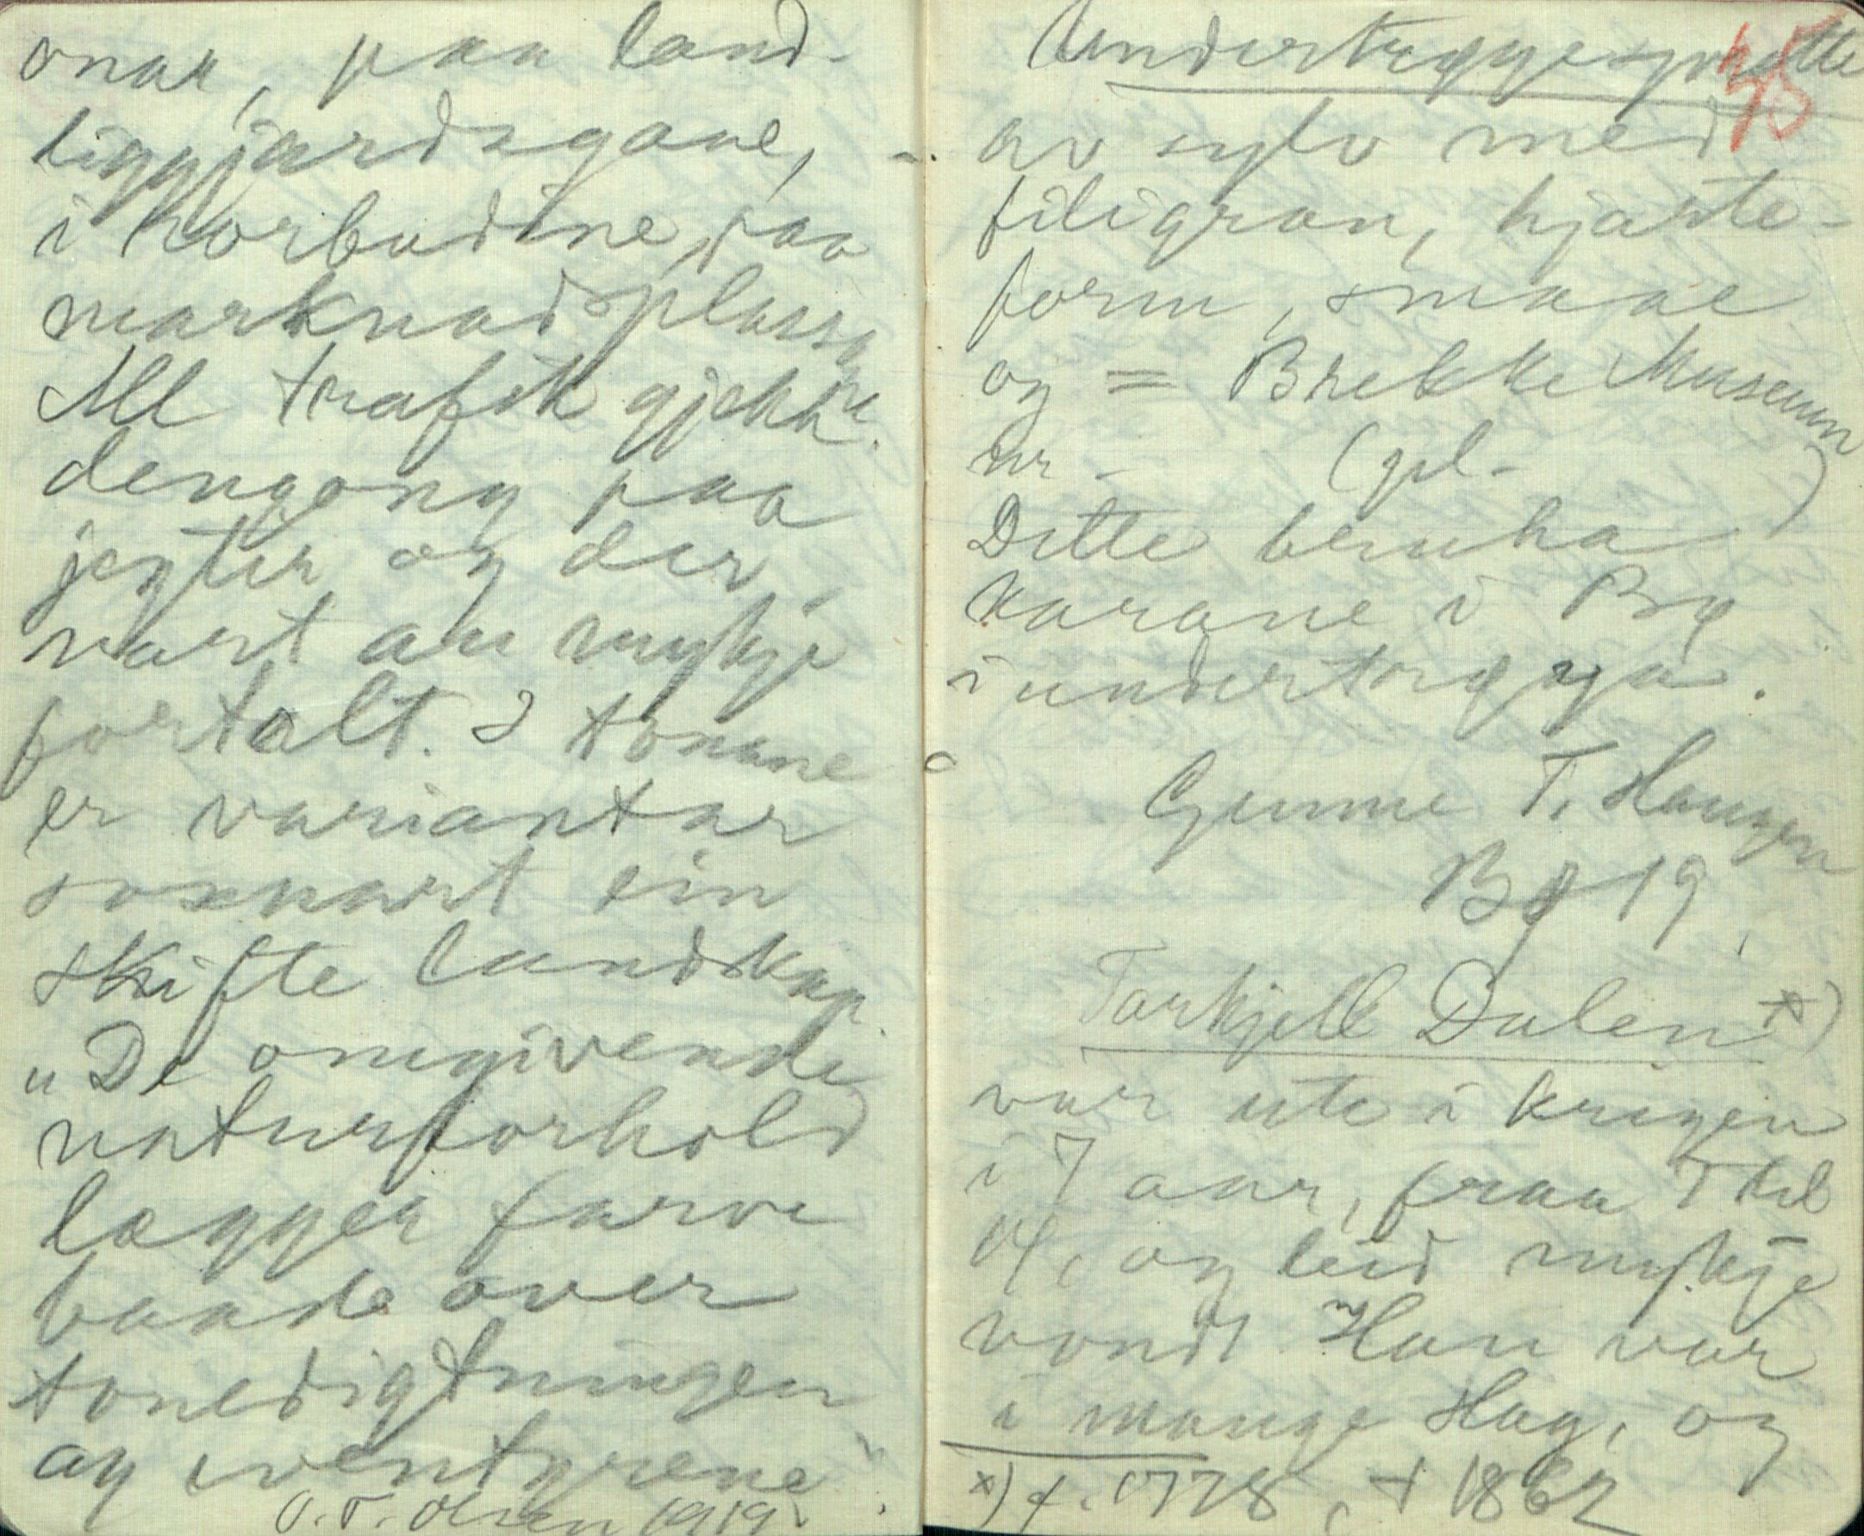 onar, paa land-
liggjardsgane,
i horbudine, paa
marknadsplassane
All trafik gjekk
dengong paa
jegter og der
vart au mykje
fortalt. I tonane
er variantar
sosnart ein
skifte landskap.
„De omgivende
naturforhold
lægger farve
baade over
tonedigtningen
og eventyrene"
O. T. Olsen 1919.
Undertrøyesprette 45
av sylv med
filigran, hjarte-
form, smaae
og = Brekke Museum
nr - (pl. )
Dette bruka
karane i Bø
i undertrøyga.
Gunne T. Haugen
Bø 19
Tarkjell Dalen x)
var ute i krigen
i 7 aar, fraa 7 til
14, og leid mykje
vondt Han var
i mange slag, og
x) f. 1778, † 1862